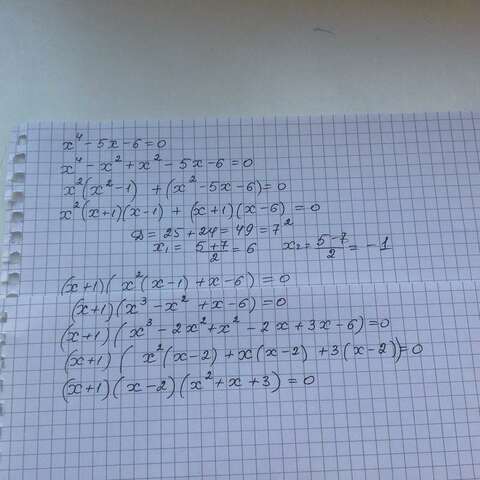 x⁴ - 5x - 6 = 0
x⁴ - x² + x² - 5x - 6 = 0
x²(x² - 1) + (x² - 5x - 6) = 0
x²(x+1)(x-1) + (x+1)(x-6) = 0
D = 25 + 24 = 49 = 7²
x₁ = (5+7)/2 = 6 x₂ = (5-7)/2 = -1
(x+1)(x²(x-1) + x - 6) = 0
(x+1)(x³ - x² + x - 6) = 0
(x+1)(x³ - 2x² + x² - 2x + 3x - 6) = 0
(x+1)(x²(x-2) + x(x-2) + 3(x-2)) = 0
(x+1)(x-2)(x² + x + 3) = 0